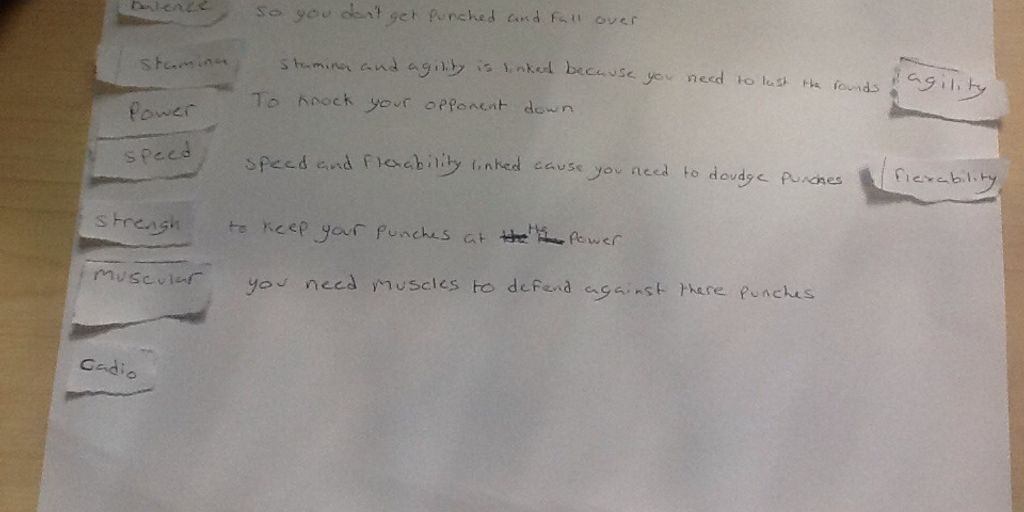 Balence so you don't get punched and fall over
Stamina Stamina and agility is linked because you need to last the rounds agility
Power To knock your opponent down
Speed Speed and flexability linked cause you need to doudge punches flexability
Strengh to keep your punches at the its power
muscular you need muscles to defend against there punches
Cadio